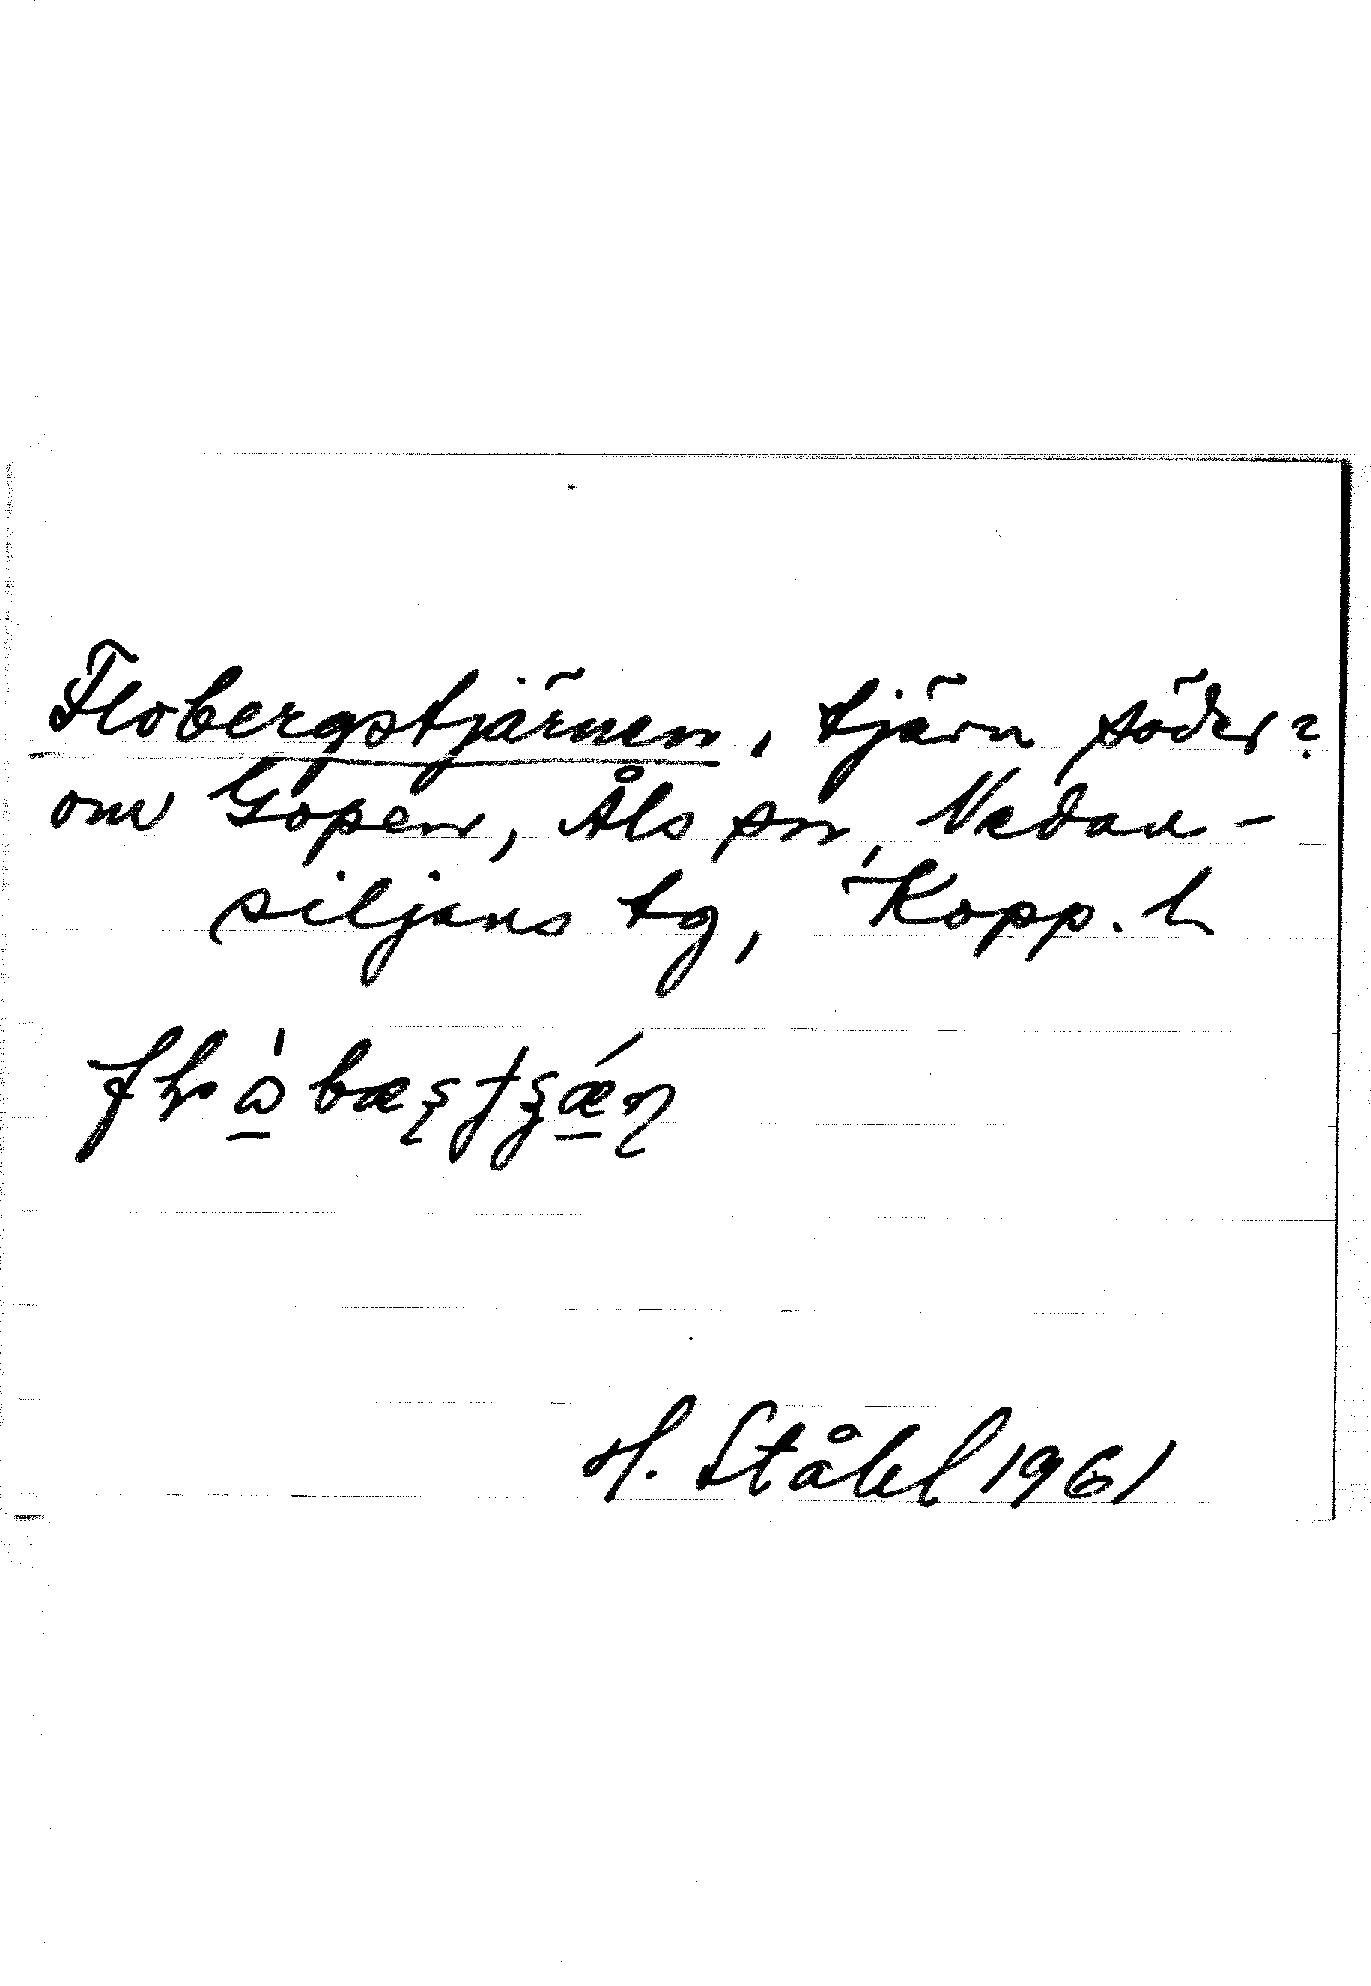 Flobergstjärnen, tjärn söder?
om Gopen, Åls sn, Nedan-
siljans tg, Kopp. l
H. Ståhl 1961